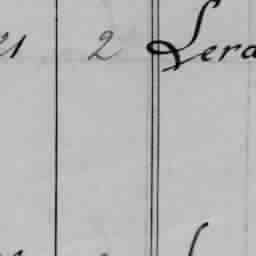 21 2 Lera